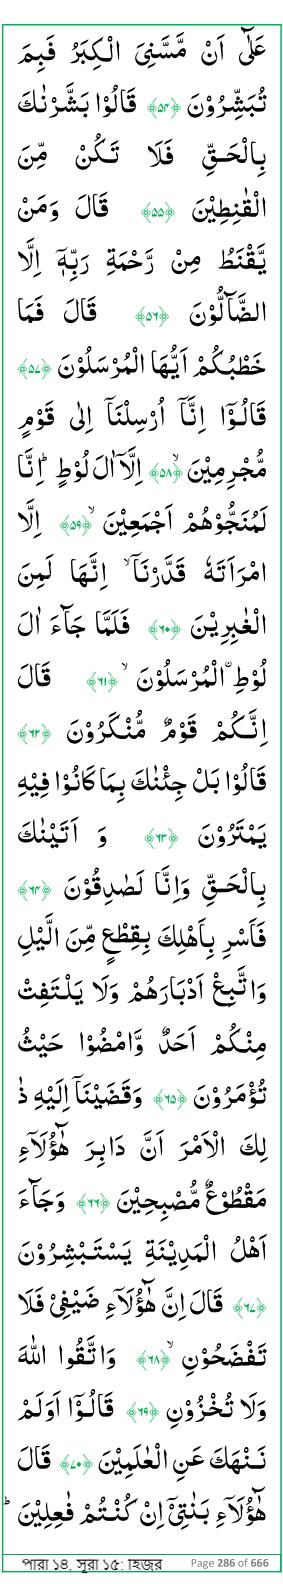 عَلٰٓى اَنْ مَّسَّنِىَ الْكِبَرُ فَبِمَ
تُبَشِّرُوْنَ ﴿۵۴﴾ قَالُوْا بَشَّرْنٰكَ
بِالْحَـقِّ فَلَا تَكُنْ مِّنَ
الْقٰنِطِيْنَ ﴿۵۵﴾ قَالَ وَمَنْ
يَّقْنَطُ مِنْ رَّحْمَةِ رَبِّهٖۤ اِلَّا
الضَّآلُّوْنَ ﴿۵۶﴾ قَالَ فَمَا
خَطْبُكُمْ اَيُّهَا الْمُرْسَلُوْنَ ﴿۵۷﴾
قَالُـوْۤا اِنَّاۤ اُرْسِلْنَاۤ اِلٰى قَوْمٍ
مُّجْرِمِيْنَۙ ﴿۵۸﴾ اِلَّاۤ اٰلَ لُوْطٍؕ اِنَّا
لَمُنَجُّوْهُمْ اَجْمَعِيْنَۙ ﴿۵۹﴾ اِلَّا
امْرَاَتَهٗ قَدَّرْنَاۤۙ اِنَّهَا لَمِنَ
الْغٰبِرِيْنَ ﴿۶۰﴾ فَلَمَّا جَآءَ اٰلَ
لُوْطِ ۨالْمُرْسَلُوْنَۙ ﴿۶۱﴾ قَالَ
اِنَّكُمْ قَوْمٌ مُّنْكَرُوْنَ ﴿۶۲﴾
قَالُوْا بَلْ جِئْنٰكَ بِمَا كَانُوْا فِيْهِ
يَمْتَرُوْنَ ﴿۶۳﴾ وَ اَتَيْنٰكَ
بِالْحَـقِّ وَاِنَّا لَصٰدِقُوْنَ ﴿۶۴﴾
فَاَسْرِ بِاَهْلِكَ بِقِطْعٍ مِّنَ الَّيْلِ
وَاتَّبِعْ اَدْبَارَهُمْ وَلَا يَلْـتَفِتْ
مِنْكُمْ اَحَدٌ وَّامْضُوْا حَيْثُ
تُؤْمَرُوْنَ ﴿۶۵﴾ وَقَضَيْنَاۤ اِلَيْهِ ذٰ
لِكَ الْاَمْرَ اَنَّ دَابِرَ هٰٓؤُلَاۤءِ
مَقْطُوْعٌ مُّصْبِحِيْنَ ﴿۶۶﴾ وَجَآءَ
اَهْلُ الْمَدِيْنَةِ يَسْتَـبْشِرُوْنَ
﴿۶۷﴾ قَالَ اِنَّ هٰٓؤُلَاۤءِ ضَيْفِىْ فَلَا
تَفْضَحُوْنِۙ ﴿۶۸﴾ وَاتَّقُوا اللّٰهَ
وَلَا تُخْزُوْنِ ﴿۶۹﴾ قَالُـوْۤا اَوَلَمْ
نَـنْهَكَ عَنِ الْعٰلَمِيْنَ ﴿۷۰﴾ قَالَ
هٰٓؤُلَاۤءِ بَنٰتِىْۤ اِنْ كُنْـتُمْ فٰعِلِيْنَؕ
পারা ১৪, সূরা ১৫: হিজর Page 286 of 666